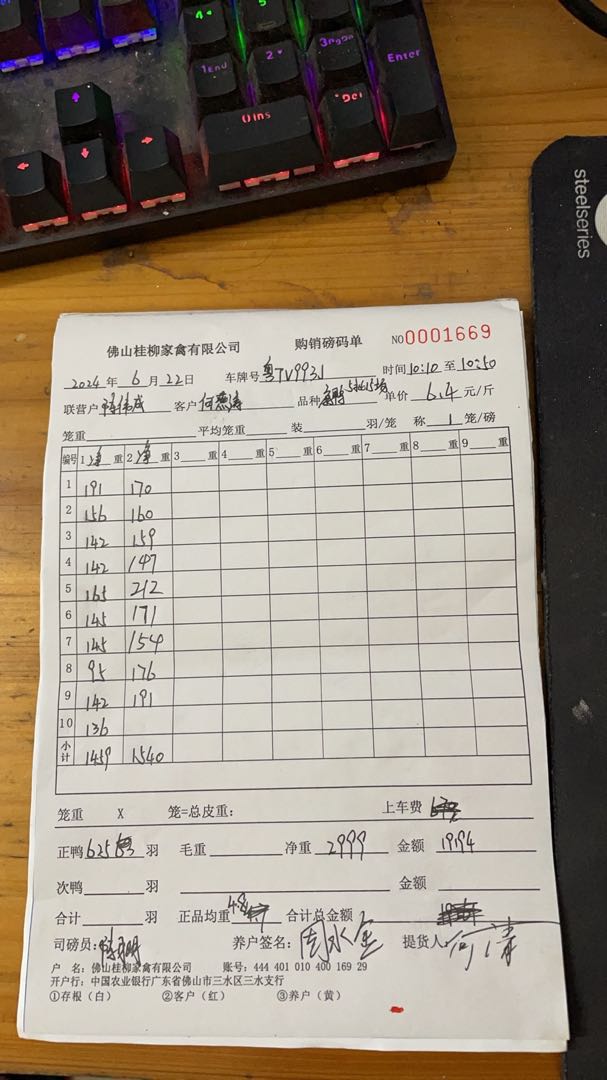 4
5
1End
2
3PgDn
Enter
0Ins
Del
steelseries
佛山桂柳家禽有限公司 购销磅码单 NO0001669
2024 年 6 月 22 日 车牌号 粤TV9931 时间 10:10 至 10:50
联营户 客户 品种 单价 6.4 元/斤
笼重 平均笼重 装 羽/笼 称 1 笼/磅
编号 1 净 重 2 净 重 3 重 4 重 5 重 6 重 7 重 8 重 9 重
1 191 170
2 156 160
3 142 159
4 142 147
5 165 212
6 145 171
7 145 154
8 95 176
9 142 191
10 136
小计 1459 1540
笼重 X 笼=总皮重: 上车费
正鸭 625 羽 毛重 净重 2999 金额 19194
次鸭 羽 金额
合计 羽 正品均重 4.8 合计总金额
司磅员: 养户签名: 周水金 提货人
户 名: 佛山桂柳家禽有限公司 账号: 444 401 010 400 169 29
开户行: 中国农业银行广东省佛山市三水区三水支行
①存根（白） ②客户（红） ③养户（黄）